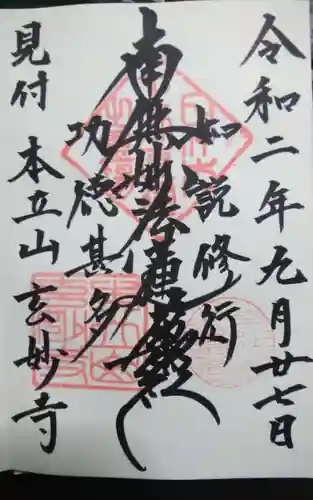 令和二年九月廿七日
如説修行
南無妙法蓮華經
功徳甚多
見付 本立山玄妙寺